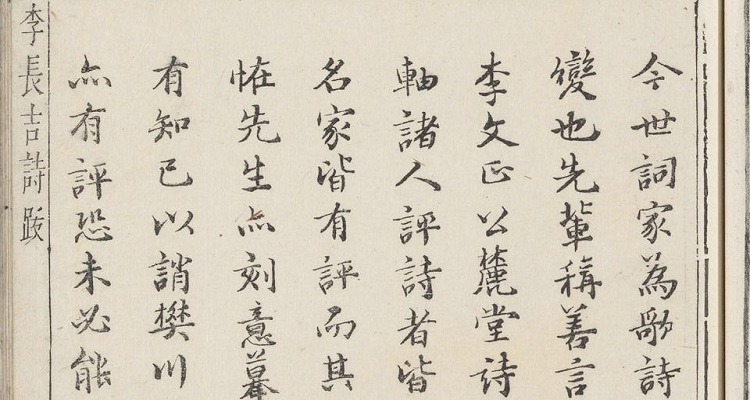 今世詞家為歌詩
變也先輩稱善言
李文正公麓堂詩
軸諸人評詩者皆
名家皆有評而其
恠先生亦刻意
有知已以誚樊川
亦有評恐未必能
李長吉詩跋